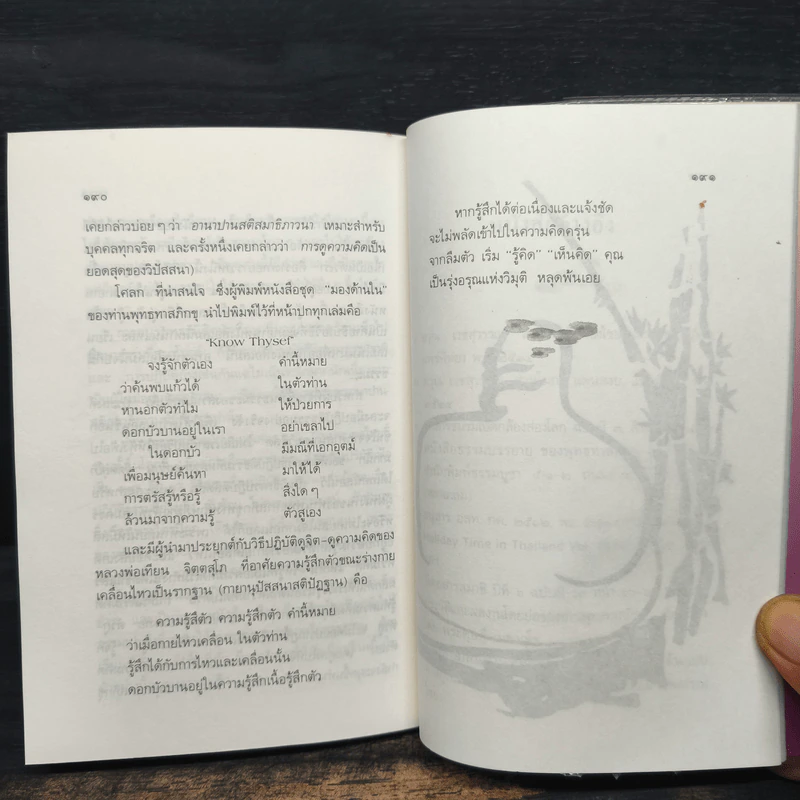 ๑๙๐
เคยกล่าวบ่อยๆว่า อานาปานสติสมาธิภาวนา เหมาะสำหรับ
บุคคลทุกจริต และครั้งหนึ่งเคยกล่าวว่า การดูความคิดเป็น
ยอดสุดของวิปัสสนา)
โศลก ที่น่าสนใจ ซึ่งผู้พิมพ์หนังสือชุด "มองด้านใน"
ของท่านพุทธทาสภิกขุ นำไปพิมพ์ไว้ที่หน้าปกทุกเล่มคือ
"Know Thysef"
จงรู้จักตัวเอง คำนี้หมาย
ว่าค้นพบแก้วได้ ในตัวท่าน
หานอกตัวทำไม ให้ป่วยการ
ดอกบัวบานอยู่ในเรา อย่าเขลาไป
ในดอกบัว มีมณีที่เอกอุตม์
เพื่อมนุษย์ค้นหา มาให้ได้
การตรัสรู้หรือรู้ สิ่งใดๆ
ล้วนมาจากความรู้ ตัวสูเอง
และมีผู้นำมาประยุกต์กับวิธีปฏิบัติดูจิต-ดูความคิดของ
หลวงพ่อเทียน จิตตสุโภ ที่อาศัยความรู้สึกตัวขณะร่างกาย
เคลื่อนไหวเป็นรากฐาน (กายานุปัสสนาสติปัฏฐาน) คือ
ความรู้สึตัว ความรู้สึกตัว คำนี้หมาย
ว่าเมื่อกายไหวเคลื่อน ในตัวท่าน
รู้สึกได้กับการไหวและเคลื่อนนั้น
ดอกบัวบานอยู่ในความรู้สึกเนื้อรู้สึกตัว
๑๙๑
หากรู้สึกได้ต่อเนื่องและแจ้งชัด
จะไม่พลัดเข้าไปในความคิดครุ่น
จากลืมตัว เริ่ม "รู้คิด" "เห็นคิด" คุณ
เป็นรุ่งอรุณแห่งวิมุติ หลุดพ้นเอย